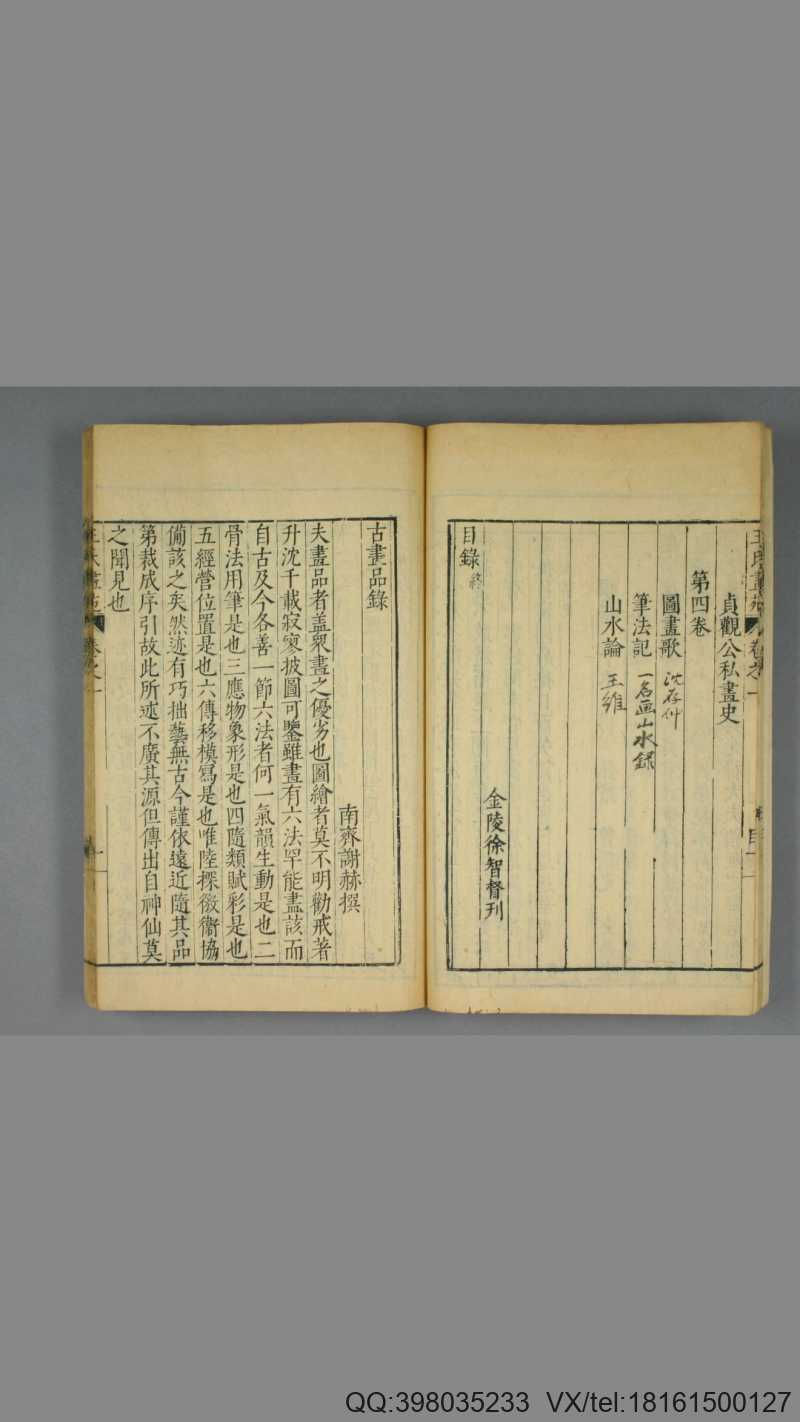 王氏畫苑 卷之一
貞觀公私畫史
第四卷
圖畫歌 沈存仲
筆法記 一名画山水録
山水論 王維
金陵徐智督刊
目錄 終
古畫品錄
南齊謝赫撰
夫畫品者盖衆畫之優劣也圖繪者莫不明勸戒著
升沈千載寂寥披圖可鑒雖畫有六法罕能盡該而
自古及今各善一節六法者何一氣韻生動是也二
骨法用筆是也三應物象形是也四隨類賦彩是也
五經營位置是也六傳移模寫是也唯陸探微衞協
俻該之矣然迹有巧拙藝無古今謹依遠近隨其品
第裁成序引故此所述不廣其源但傳出自神仙莫
之聞見也
卷之一
QQ:398035233 VX/tel:18161500127